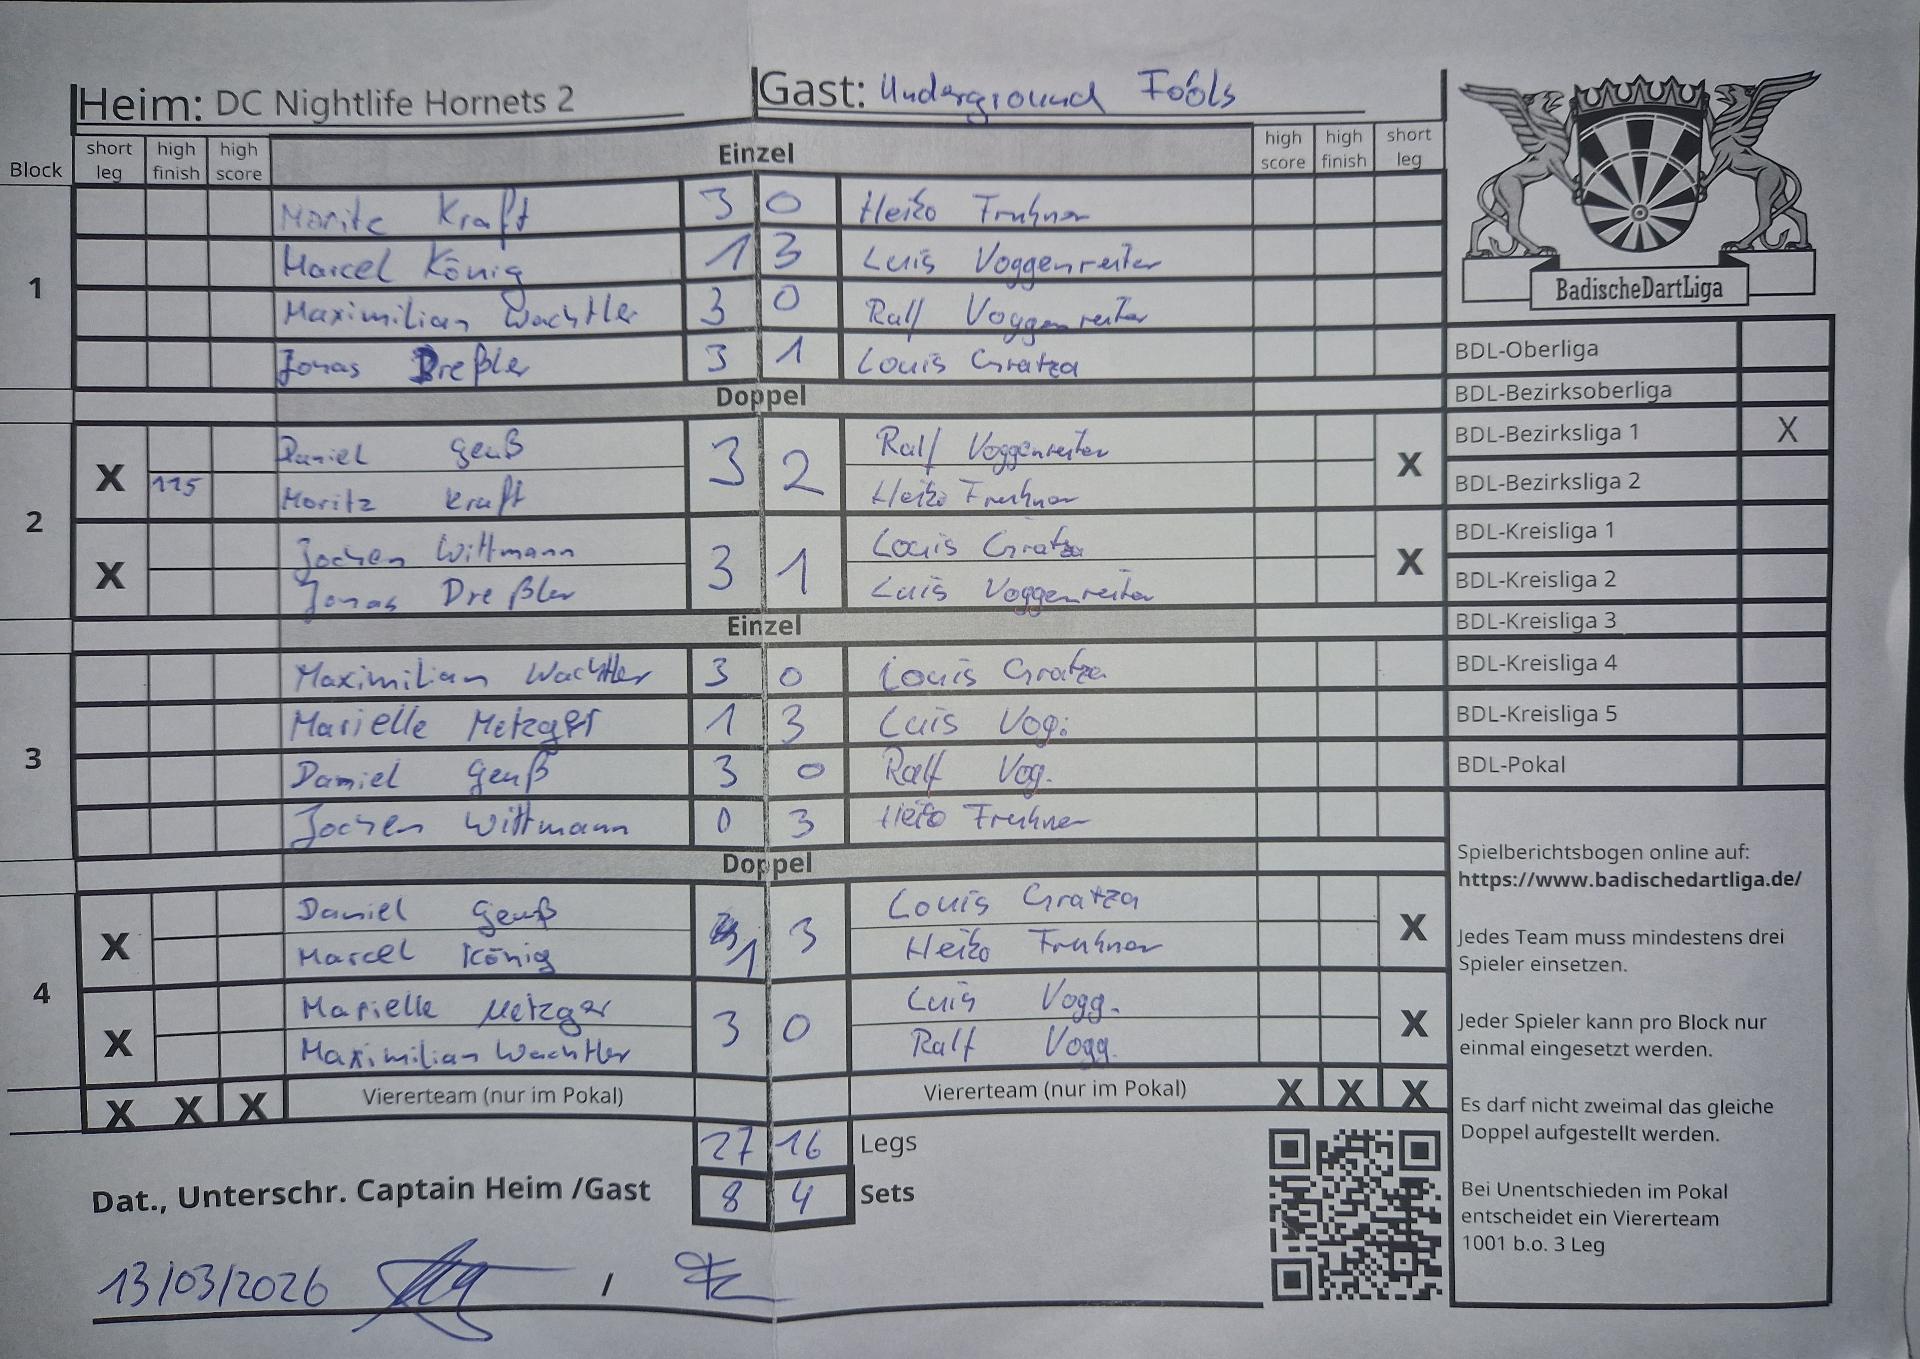 Heim: DC Nightlife Hornets 2 Gast: Underground Fools
Block short leg high finish high score Einzel high score high finish short leg
1
Moritz Kraft 3 0 Heiko Fruhner
Marcel König 1 3 Luis Voggenreiter
Maximilian Wachtler 3 0 Ralf Voggenreiter
Jonas Dreßler 3 1 Louis Gratza
Doppel
2
X Daniel Genß 3 2 Ralf Voggenreiter X
115 Moritz Kraft Heiko Fruhner
X Jochen Wittmann 3 1 Louis Gratza X
Jonas Dreßler Luis Voggenreiter
Einzel
3
Maximilian Wachtler 3 0 Louis Gratza
Marielle Metzger 1 3 Luis Vog.
Daniel Genß 3 0 Ralf Vog.
Jochen Wittmann 0 3 Heiko Fruhner
Doppel
4
X Daniel Genß 1 3 Louis Gratza X
Marcel König Heiko Fruhner
X Marielle Metzger 3 0 Luis Vogg. X
Maximilian Wachtler Ralf Vogg.
X X X Viererteam (nur im Pokal) Viererteam (nur im Pokal) X X X
27 16 Legs
8 4 Sets
Dat., Unterschr. Captain Heim /Gast
13/03/2026 /
BadischeDartLiga
BDL-Oberliga
BDL-Bezirksoberliga
BDL-Bezirksliga 1 X
BDL-Bezirksliga 2
BDL-Kreisliga 1
BDL-Kreisliga 2
BDL-Kreisliga 3
BDL-Kreisliga 4
BDL-Kreisliga 5
BDL-Pokal
Spielberichtsbogen online auf:
https://www.badischedartliga.de/
Jedes Team muss mindestens drei
Spieler einsetzen.
Jeder Spieler kann pro Block nur
einmal eingesetzt werden.
Es darf nicht zweimal das gleiche
Doppel aufgestellt werden.
Bei Unentschieden im Pokal
entscheidet ein Viererteam
1001 b.o. 3 Leg